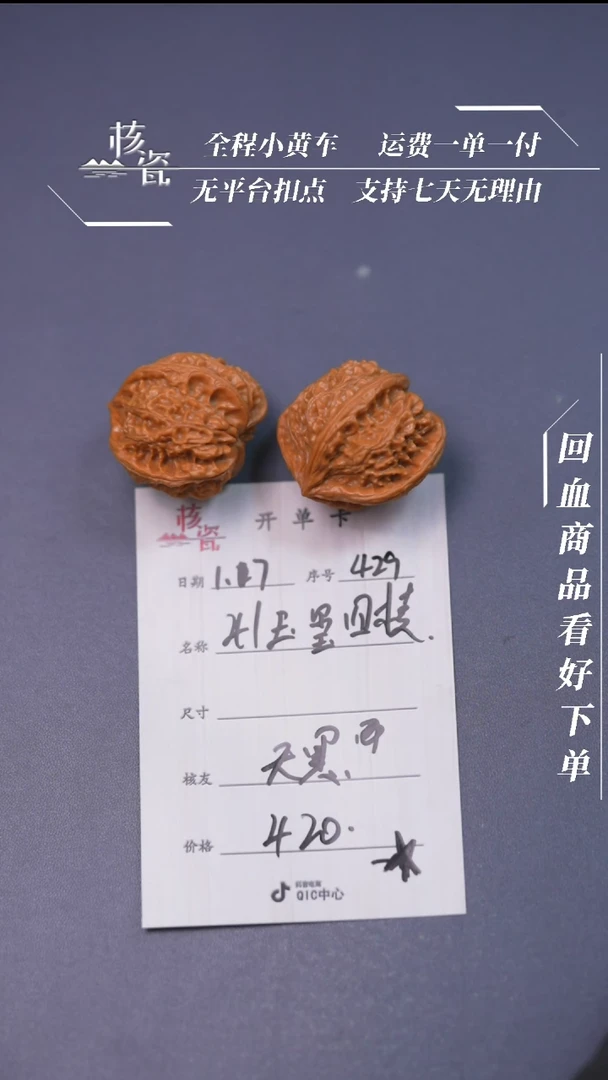 核瓷
全程小黄车 运费一单一付
无平台扣点 支持七天无理由
回血商品看好下单
核瓷
开单卡
日期 1.17 序号 429
名称
尺寸
核友 天黑
价格 420.
抖音电商
QIC中心